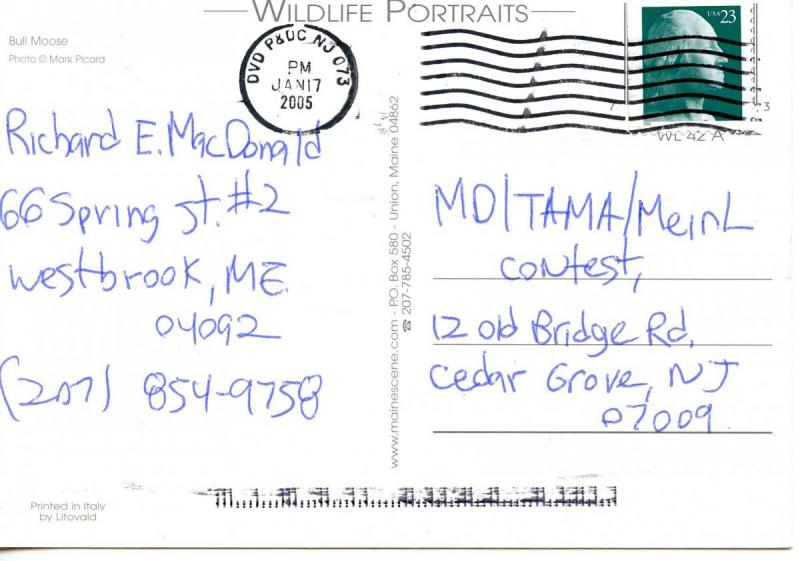 WILDLIFE PORTRAITS
Bull Moose
Photo © Mark Picard
DVD P&DC NJ 073
PM
JAN 17
2005
USA 23
Richard E. MacDonald
66 Spring st. #2
Westbrook, ME
04092
(207) 854-9758
www.mainescene.com - P.O. Box 580 - Union, Maine 04862
☎ 207-785-4502
MD/TAMA/Meinl
contest,
12 old Bridge Rd,
Cedar Grove, NJ
07009
Printed in Italy
by Litovald